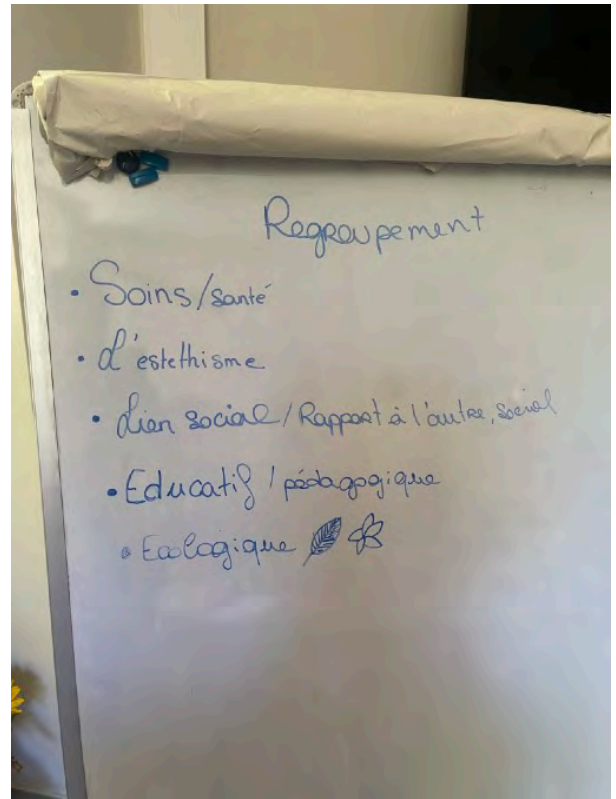 Regroupement
• Soins/santé
• L'estethisme
• Lien social / Rapport à l'autre, social
• Educatif / pédagogique
• Ecologique